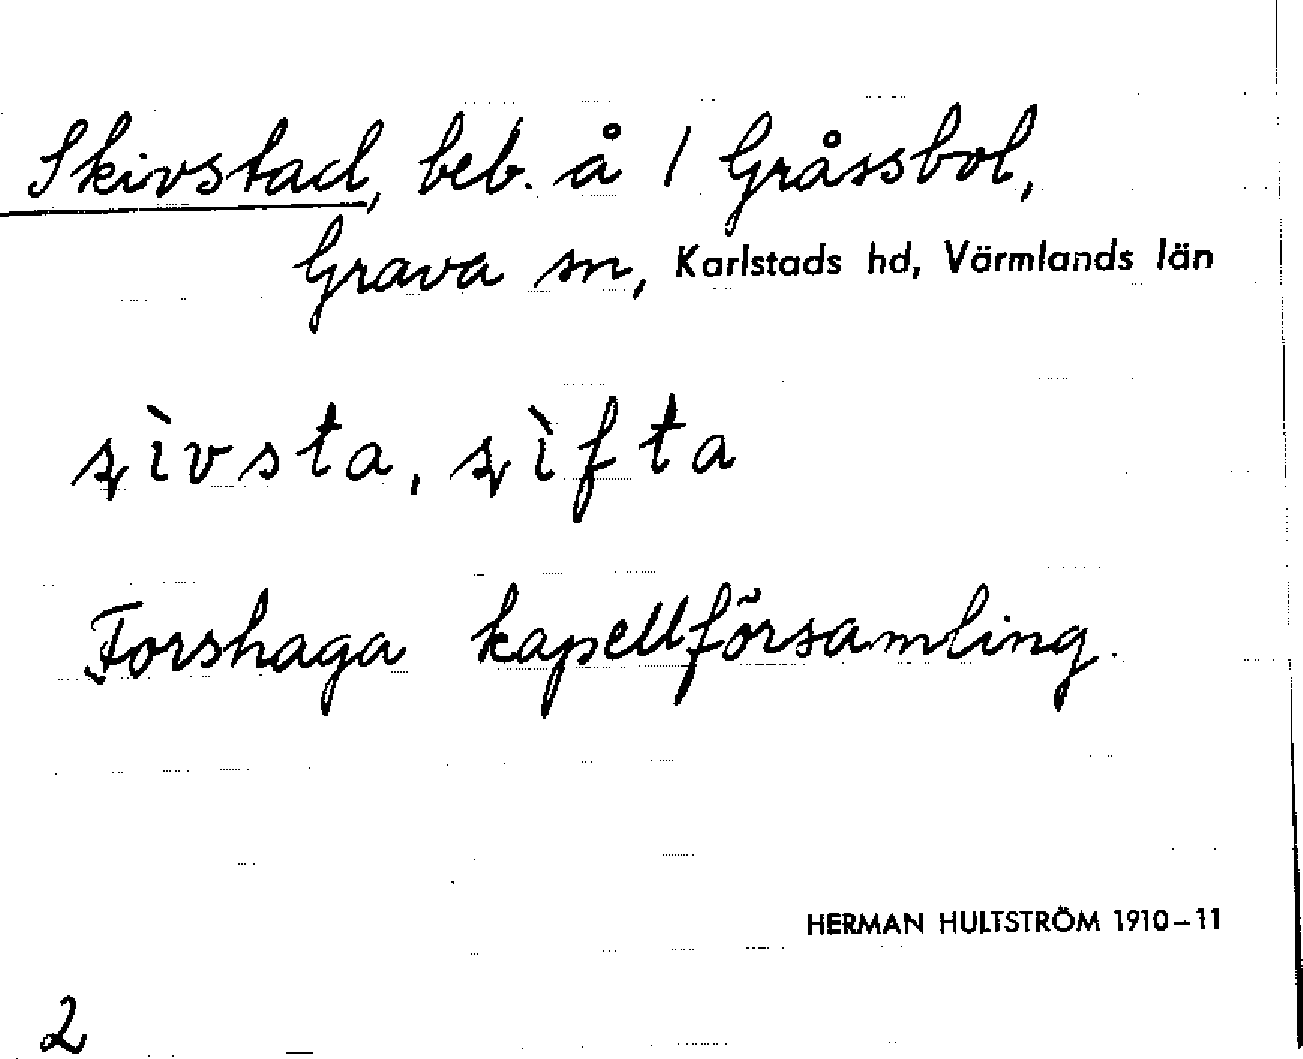 Skivstad, beb. å 1 Gråssbol,
Grava sn, Karlstads hd, Värmlands län
ʂìvsta, ʂìfta
Forshaga kapellförsamling.
HERMAN HULTSTRÖM 1910–11
2